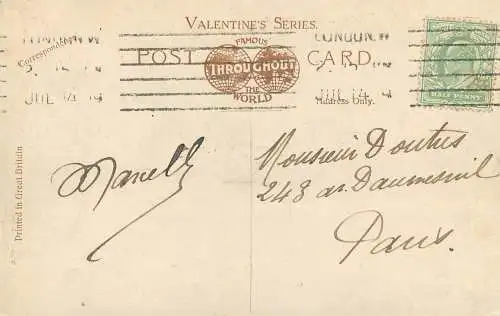 VALENTINE'S SERIES.
FAMOUS
POST THROUGHOUT CARD
THE WORLD
Correspondence
Address Only.
LONDON. W
JUL 14
LONDON. W
JUL 14
HALF PENNY
Printed in Great Britain
Monsieur Doutus
248 av. Daumesnil
Paris.